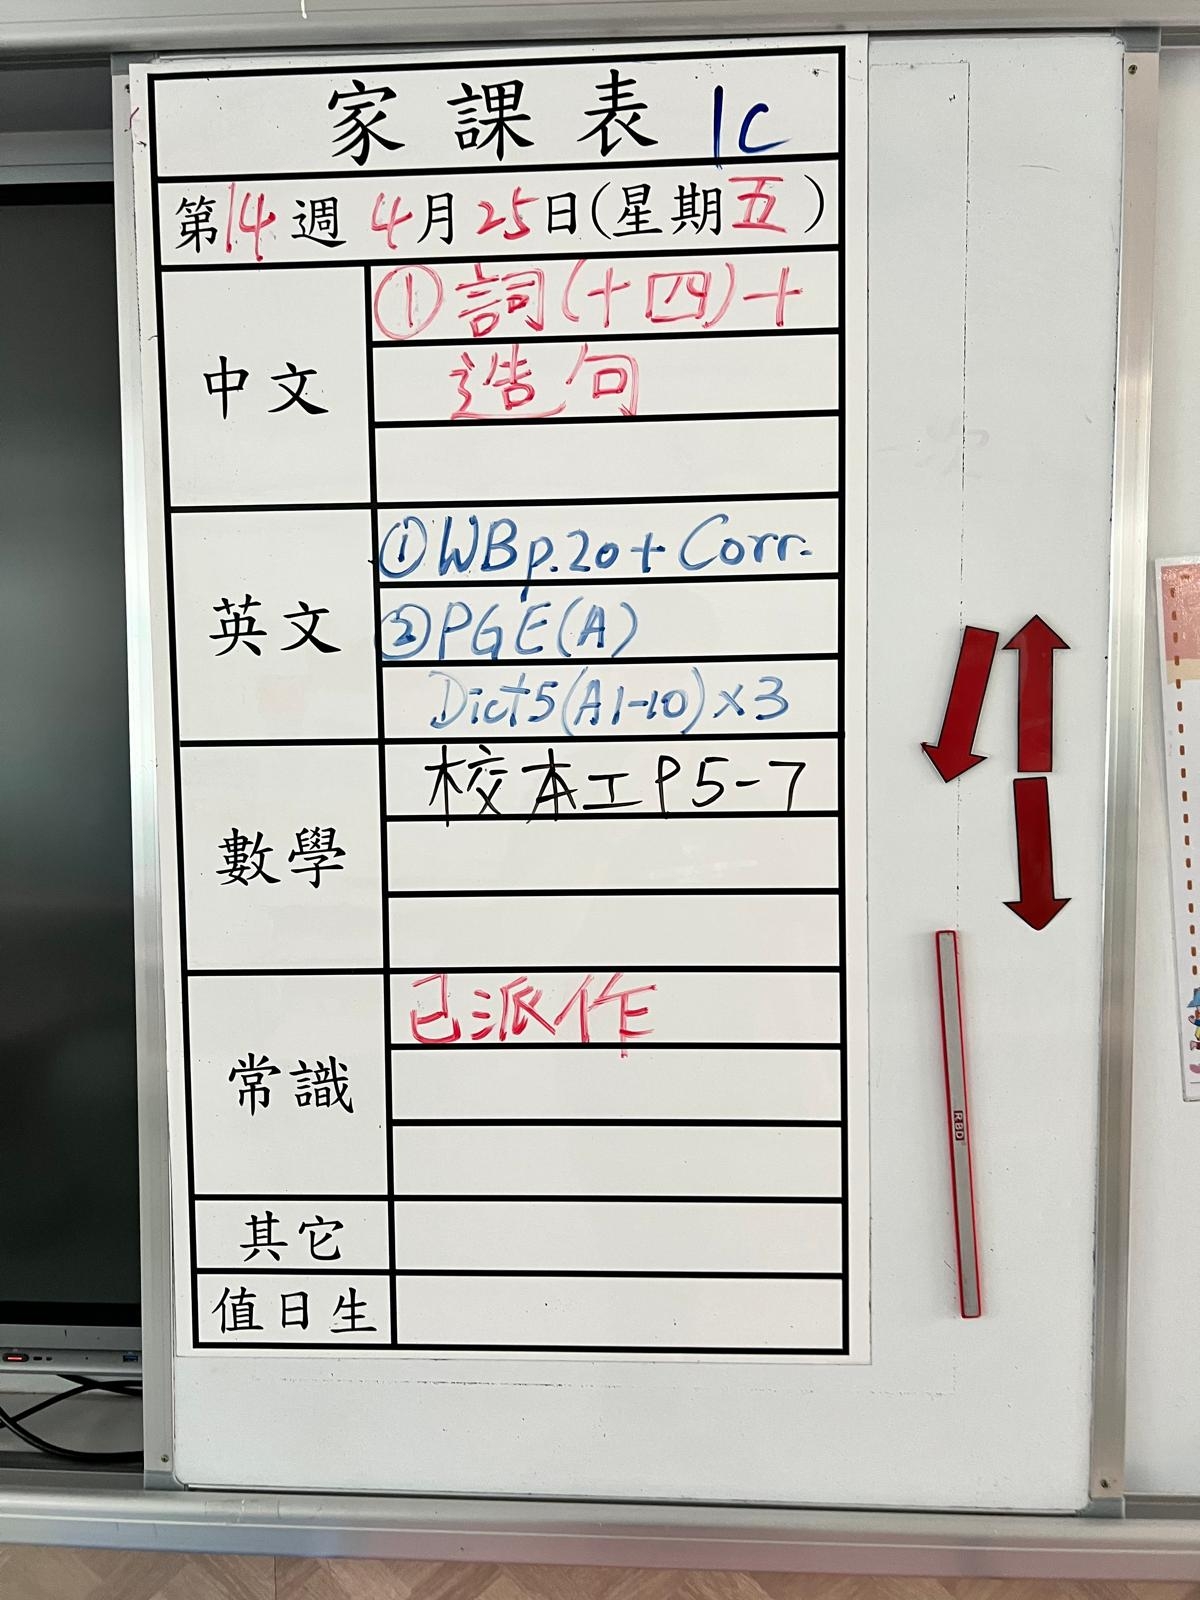 家課表 1C
第14週 4月25日(星期五)
中文
①詞(十四)+
造句
英文
①WB p.20 + Corr.
②PGE(A)
Dict 5 (A1-10) x 3
數學
校本工P5-7
常識
已派作
其它
值日生
RBD